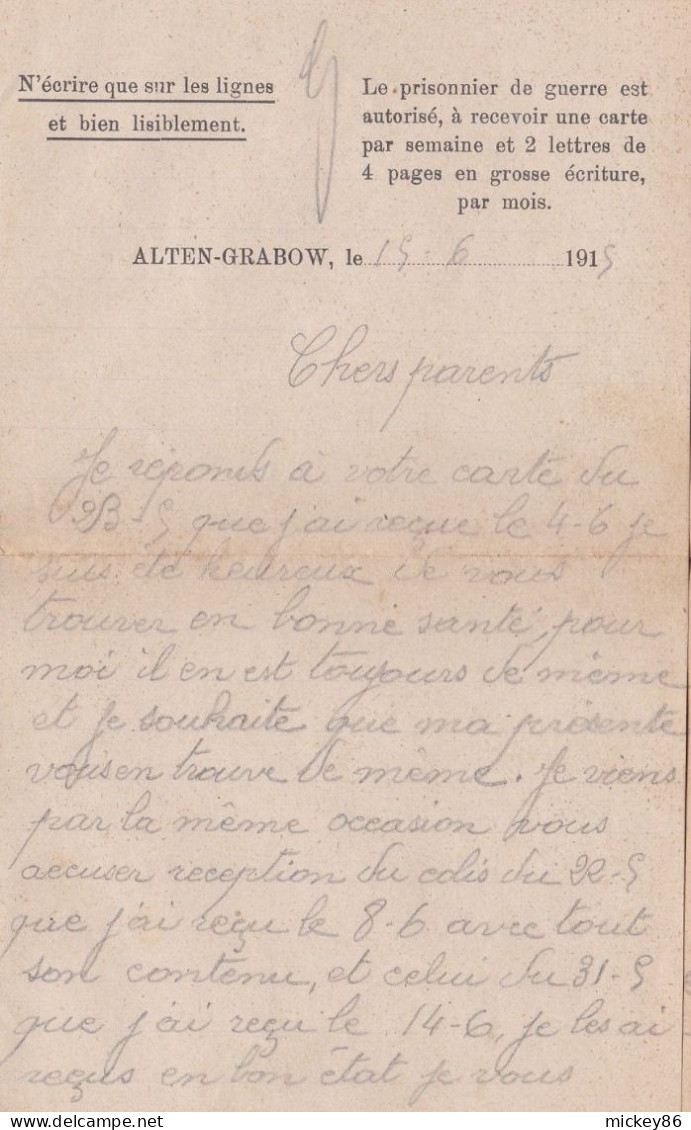 N'écrire que sur les lignes
et bien lisiblement.
Le prisonnier de guerre est
autorisé, à recevoir une carte
par semaine et 2 lettres de
4 pages en grosse écriture,
par mois.
ALTEN-GRABOW, le 15-6 1915
Chers parents
Je réponds à votre carte du
23-5 que j'ai reçue le 4-6 je
suis été heureux de vous
trouver en bonne santé, pour
moi il en est toujours de même
et je souhaite que ma présente
vous en trouve de même. Je viens
par la même occasion vous
accuser reception du colis du 22-5
que j'ai reçu le 8-6 avec tout
son contenu, et celui du 31-5
que j'ai reçu le 14-6, je les ai
reçus en bon état je vous
delcampe.net
mickey86